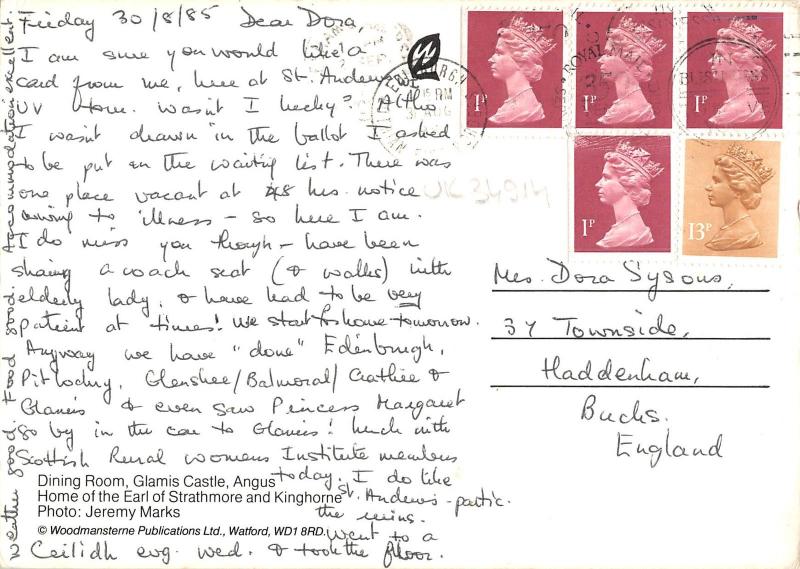 Friday 30/8/85 Dear Dora,
I am sure you would like a
card from me, here at St. Andrews
UV Home. Wasn't I lucky? Altho
I wasn't drawn in the ballot I asked
to be put on the waiting list. There was
one place vacant at 48 hrs. notice
owing to illness - so here I am.
I do miss you though - have been
sharing a coach seat (& walks) with
elderly lady, & have had to be very
patient at times! We start for home tomorrow.
Anyway we have "done" Edinburgh,
Pitlochry, Glenshee/Balmoral/Crathie &
Glamis & even saw Princess Margaret
go by in the car to Glamis! Lunch with
Scottish Rural Womens Institute members
today. I do like
St. Andrews - partic.
the ruins.
Went to a
Ceilidh evg. Wed. & took the floor.
Weather good. Food good. Accommodation excellent
Dining Room, Glamis Castle, Angus
Home of the Earl of Strathmore and Kinghorne
Photo: Jeremy Marks
© Woodmansterne Publications Ltd., Watford, WD1 8RD.
UK 34914
1P
1P
1P
1P
13P
EDINBURGH
ROYAL MAIL
Mrs. Dora Sysons,
37 Townside,
Haddenham,
Bucks.
England